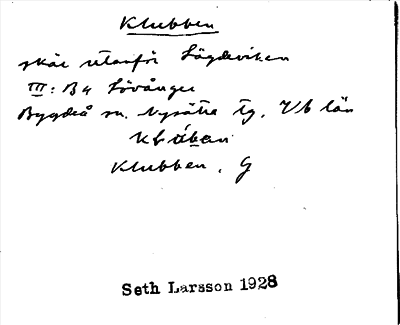 Klubben
skär utanför Lägdeviken
III: B4 Lövånger
Bygdeå sn. Nysätra tg, Vb län
Klubben, G
Seth Larsson 1928